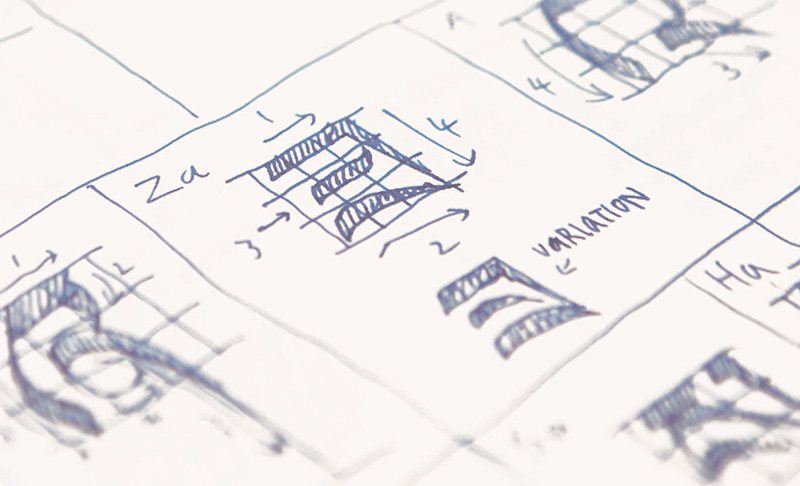 A
4
3
Za
1
4
3
2
VARIATION
1
2
Ha